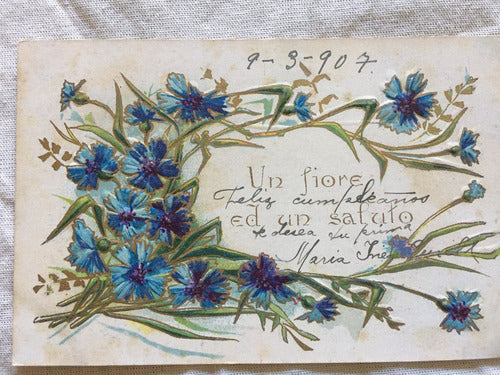 9-3-907.
Un fiore
Feliz cumpleaños
ed un saluto
te desea su prima
Maria Ines